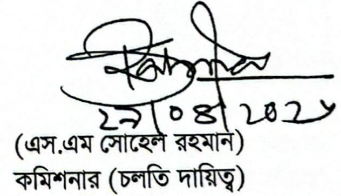 ২৯/০৪/২০২৫
(এস.এম সোহেল রহমান)
কমিশনার (চলতি দায়িত্ব)